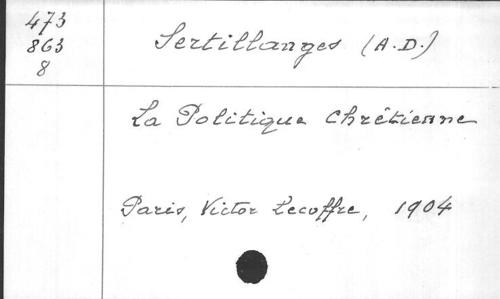 473
863
8
Sertillanges (A.D.)
La Politique Chrétienne
Paris, Victor Lecoffre, 1904